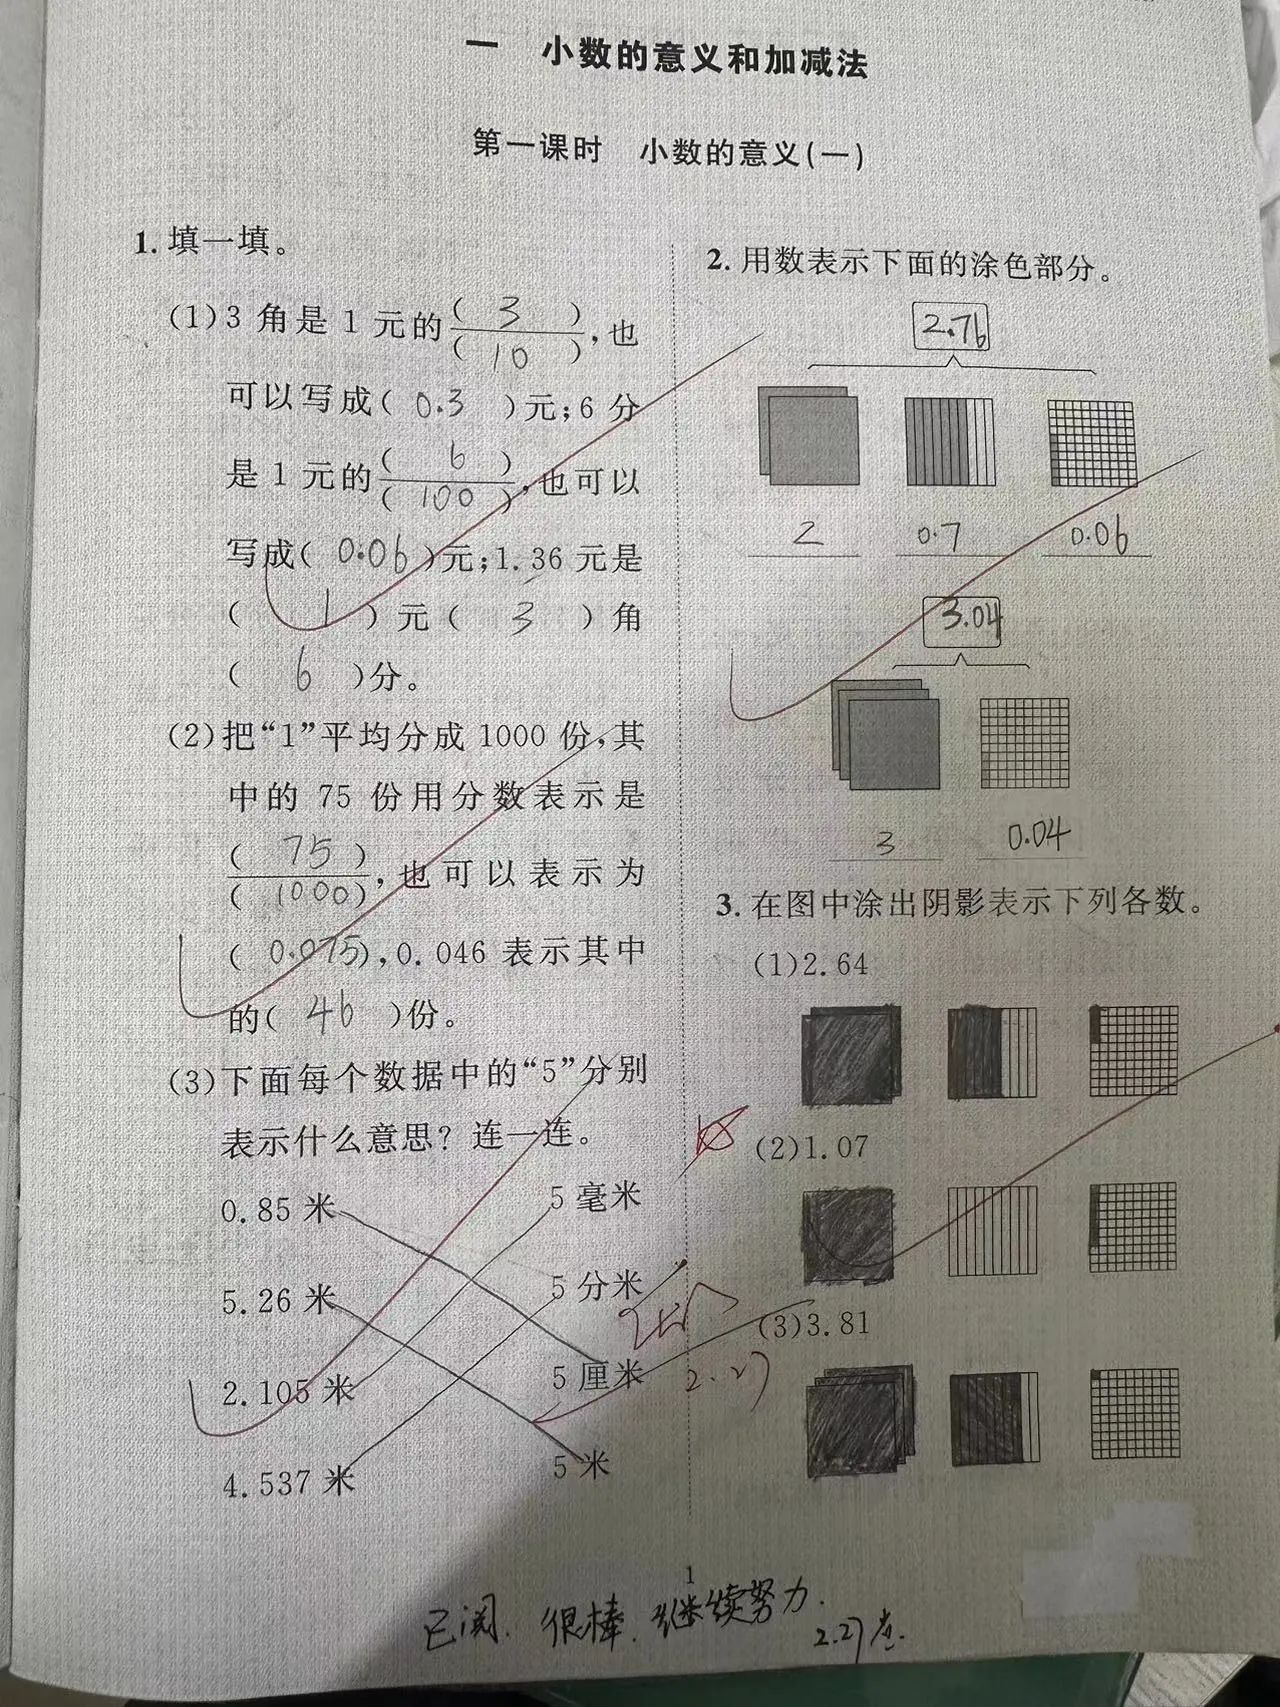 一 小数的意义和加减法
第一课时 小数的意义(一)
1. 填一填。
(1)3角是1元的(3)/(10),也
可以写成(0.3)元;6分
是1元的(6)/(100),也可以
写成(0.06)元;1.36元是
(1)元(3)角
(6)分。
(2)把“1”平均分成1000份,其
中的75份用分数表示是
(75)/(1000),也可以表示为
(0.075),0.046表示其中
的(46)份。
(3)下面每个数据中的“5”分别
表示什么意思?连一连。
0.85米 5毫米
5.26米 5分米
2.105米 5厘米
4.537米 5米
2.27
2. 用数表示下面的涂色部分。
2.76
2 0.7 0.06
3.04
3 0.04
3. 在图中涂出阴影表示下列各数。
(1)2.64
(2)1.07
(3)3.81
1
已阅. 很棒. 继续努力.
2.27